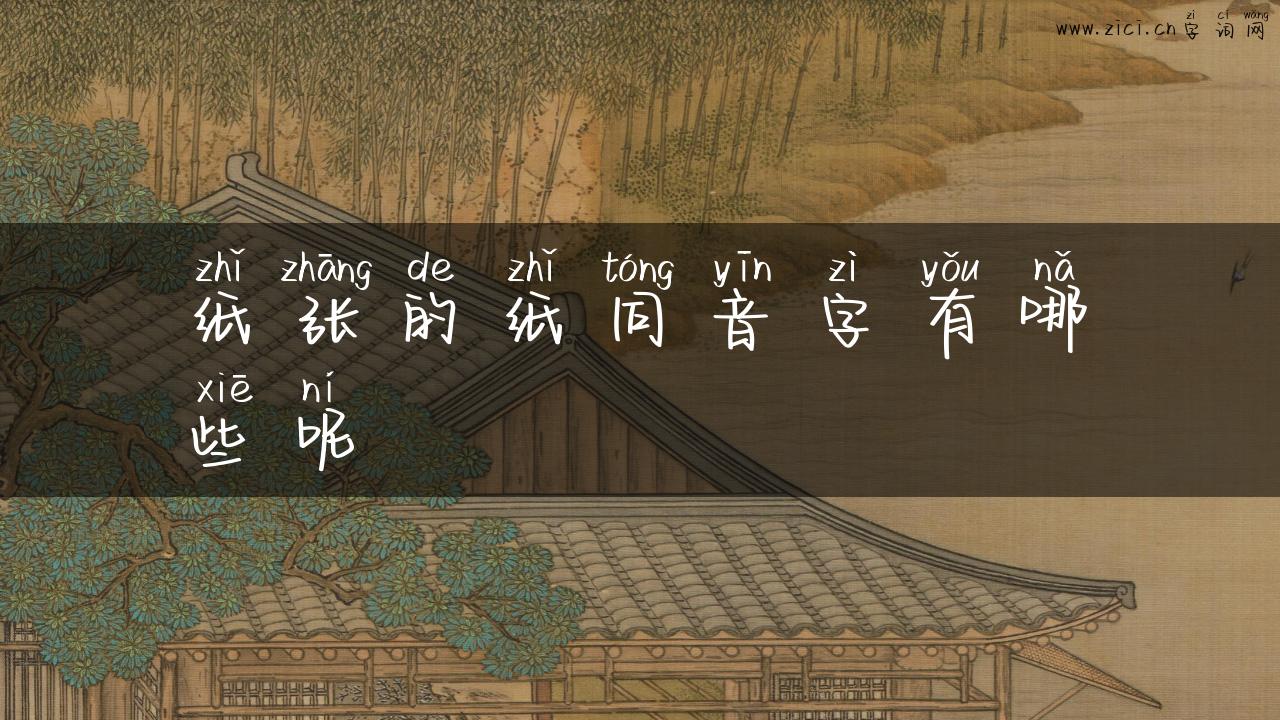 zì cí wǎng
www.zici.cn 字词网
zhǐ zhāng de zhǐ tóng yīn zì yǒu nǎ
纸张的纸同音字有哪
xiē ní
些呢